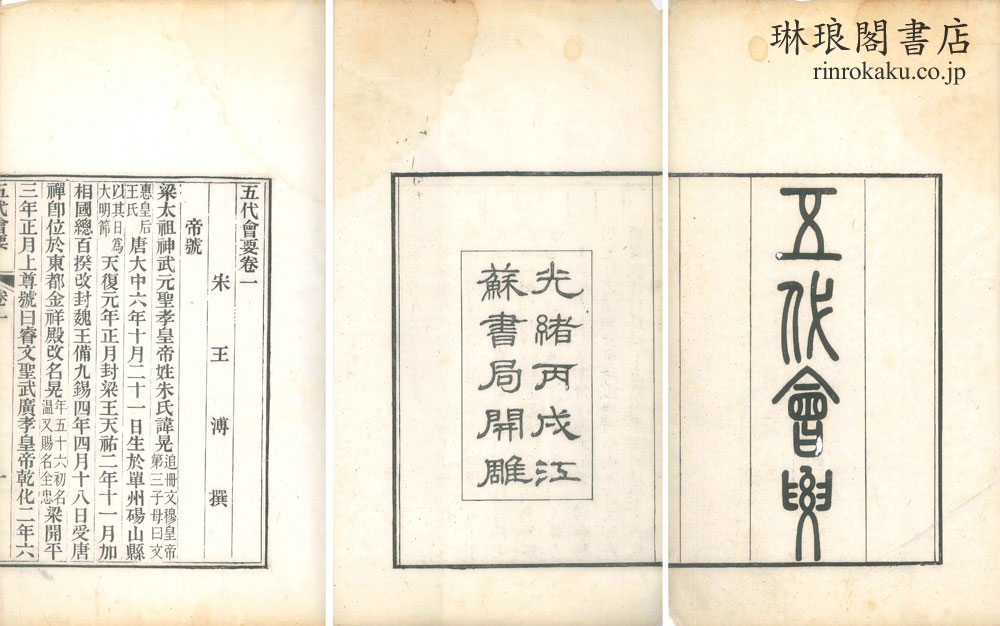 琳琅閣書店
rinrokaku.co.jp
五代會要
光緒丙戌江
蘇書局開雕
五代會要卷一
宋王溥撰
帝號
梁太祖神武元聖孝皇帝姓朱氏諱晃追冊文穆皇帝第三子母曰文
惠皇后王氏唐大中六年十月二十一日生於單州碭山縣
以其日爲大明節天復元年正月封梁王天祐二年十一月加
相國總百揆改封魏王備九錫四年四月十八日受唐
禪卽位於東都金祥殿改名晃年五十六初名温又賜名全忠梁開平
三年正月上尊號曰睿文聖武廣孝皇帝乾化二年六
五代會要 卷一 一